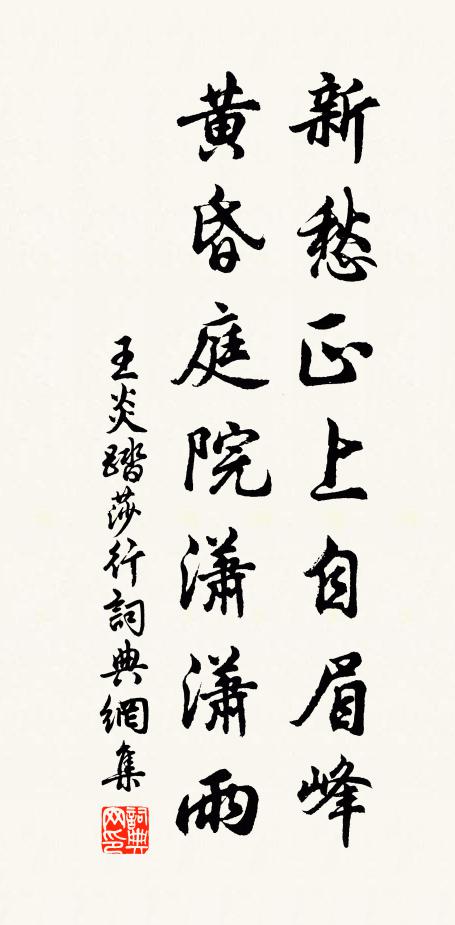 新愁正上自眉峰
黄昏庭院潇潇雨
王炎踏莎行詞典網集
詞典网印